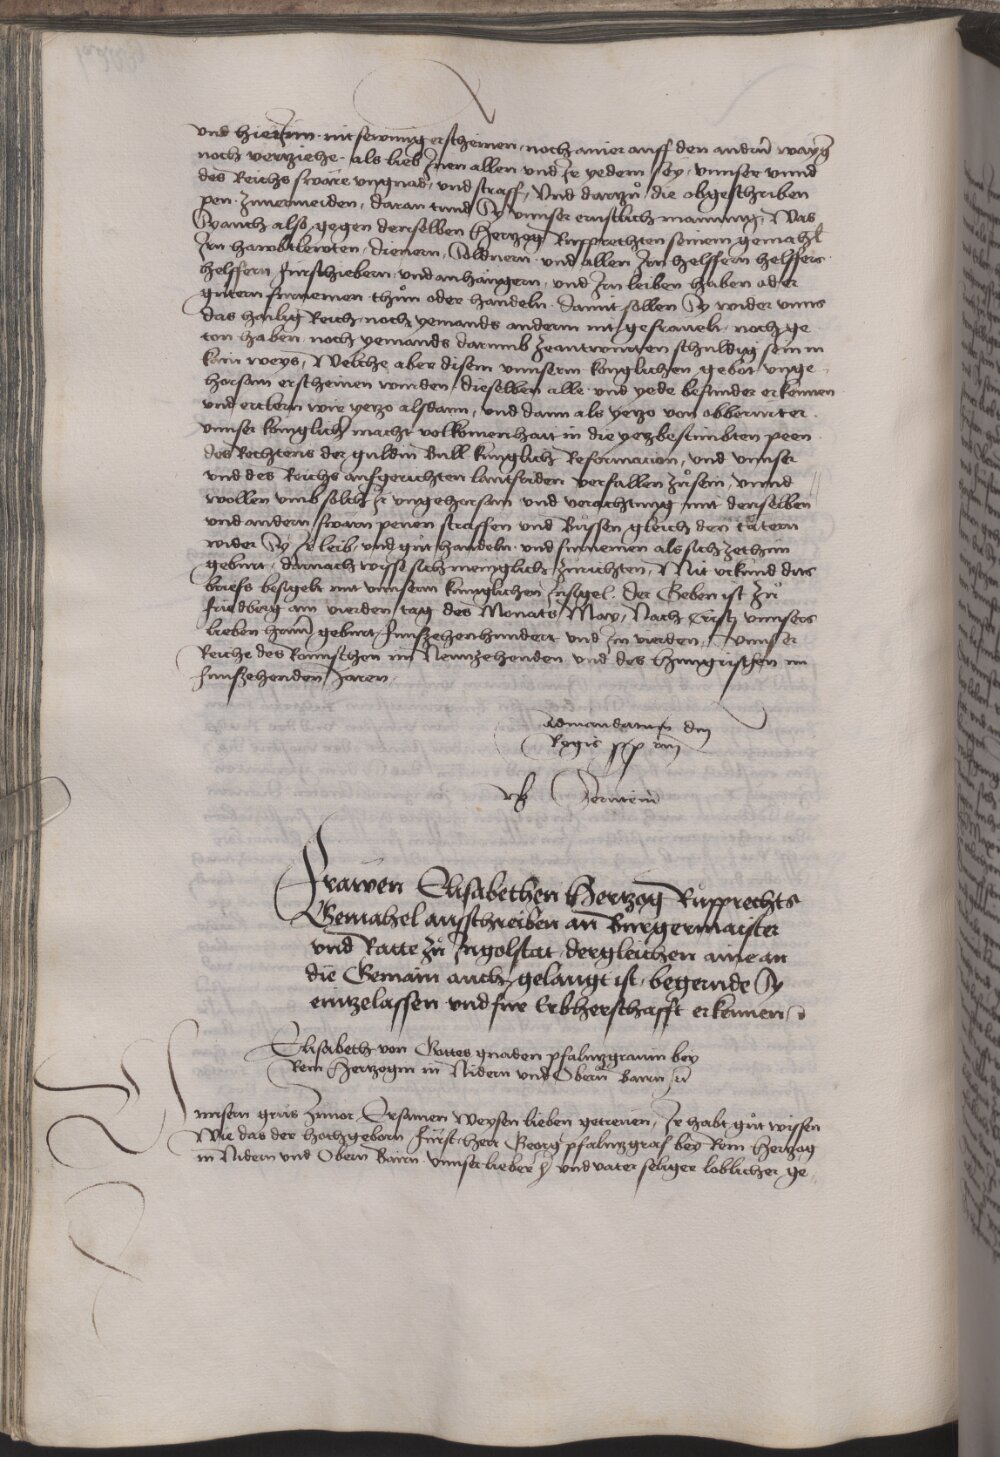 und hierinn nit sewmig erscheinen, noch ainer auff den andern wayg
noch verziehe, als lieb Inen allen und Ir yedem sey, unnser unnd
des Reichs swäre ungnad, und straff, Und darzů, die obgeschriben
pen zuvermeiden, daran tund Sy unnser ernstlich mainung, Was
Sy auch also, gegen denselben Hertzog Rupprechten seinem gemahl
Irn hawbtlewten, dienern, Soldnern und allen Irn helffern helffers
helffern fürschiebern und anhängern, und Irn leiben haben oder
gutern fürnemen thůn oder handeln, damit sollen Sy wider unns
das hailig Reich noch yemands anderm nit gefravelt, noch ge
ton haben, noch yemands darumb zeantwurten schuldig sein in
kain weys, Welche aber disem unnserm königlichen gebot unge
horsam erscheinen wurden, dieselben alle und yede besunder erkennen
und erclern wir yetzo alsdann, und dann als yetzo von obberürter
unnser königlich macht volkomenhait in die yetzbestimbten peen
des Rechtens der guldin Bull künglich Reformacion, und unnser
und des Reichs aufgerichten lantfriden verfallen zůsein, unnd
wollen umb solch Ir ungehorsam und verachtung mit denselben
und andern swärn penen straffen und Bůssen gleich den tätern
wider Sy Ir leib, und gůt handeln und fürnemen als sich zethun
geburt, darnach wisse sich menniglich zurichten, Mit urkund dits
briefs besigelt mit unnserm künglichen Insigel. Der Geben ist Zů
Fridberg am vierden tag des Monats May, Nach Cristi unnsers
lieben herrn geburt, Funfzehenhundert und Im vierden, Unnser
Reiche des Römischen im Newnzehenden und des Hungrischen im
Funfzehenden Jaren,
Admandatum dni
Regis ppriu
Sernteiner
Frawen Elisabethen Hertzog Rupprechts
Gemahel ausschreiben an Burgermaister
und Ratte zů Ingolstat, dergleichen aine an
die Gemain auch gelangt ist, begernde Sy
einzelassen und fur Erbherschafft erkennen
Elisabeth von Gottes gnaden pfaltzgravin bey
Rein Hertzogin in Nidern und Obern Bairn
Unnsern grus zuvor Ersamen Weysen lieben getrewen, Ir habt gůt wissen
Wie das der hochgeborn Fürst Herr Georg pfaltzgraf bey Rein Hertzog
in Nidern und Obern Bairn unnser lieber H und vater seliger loblicher ge